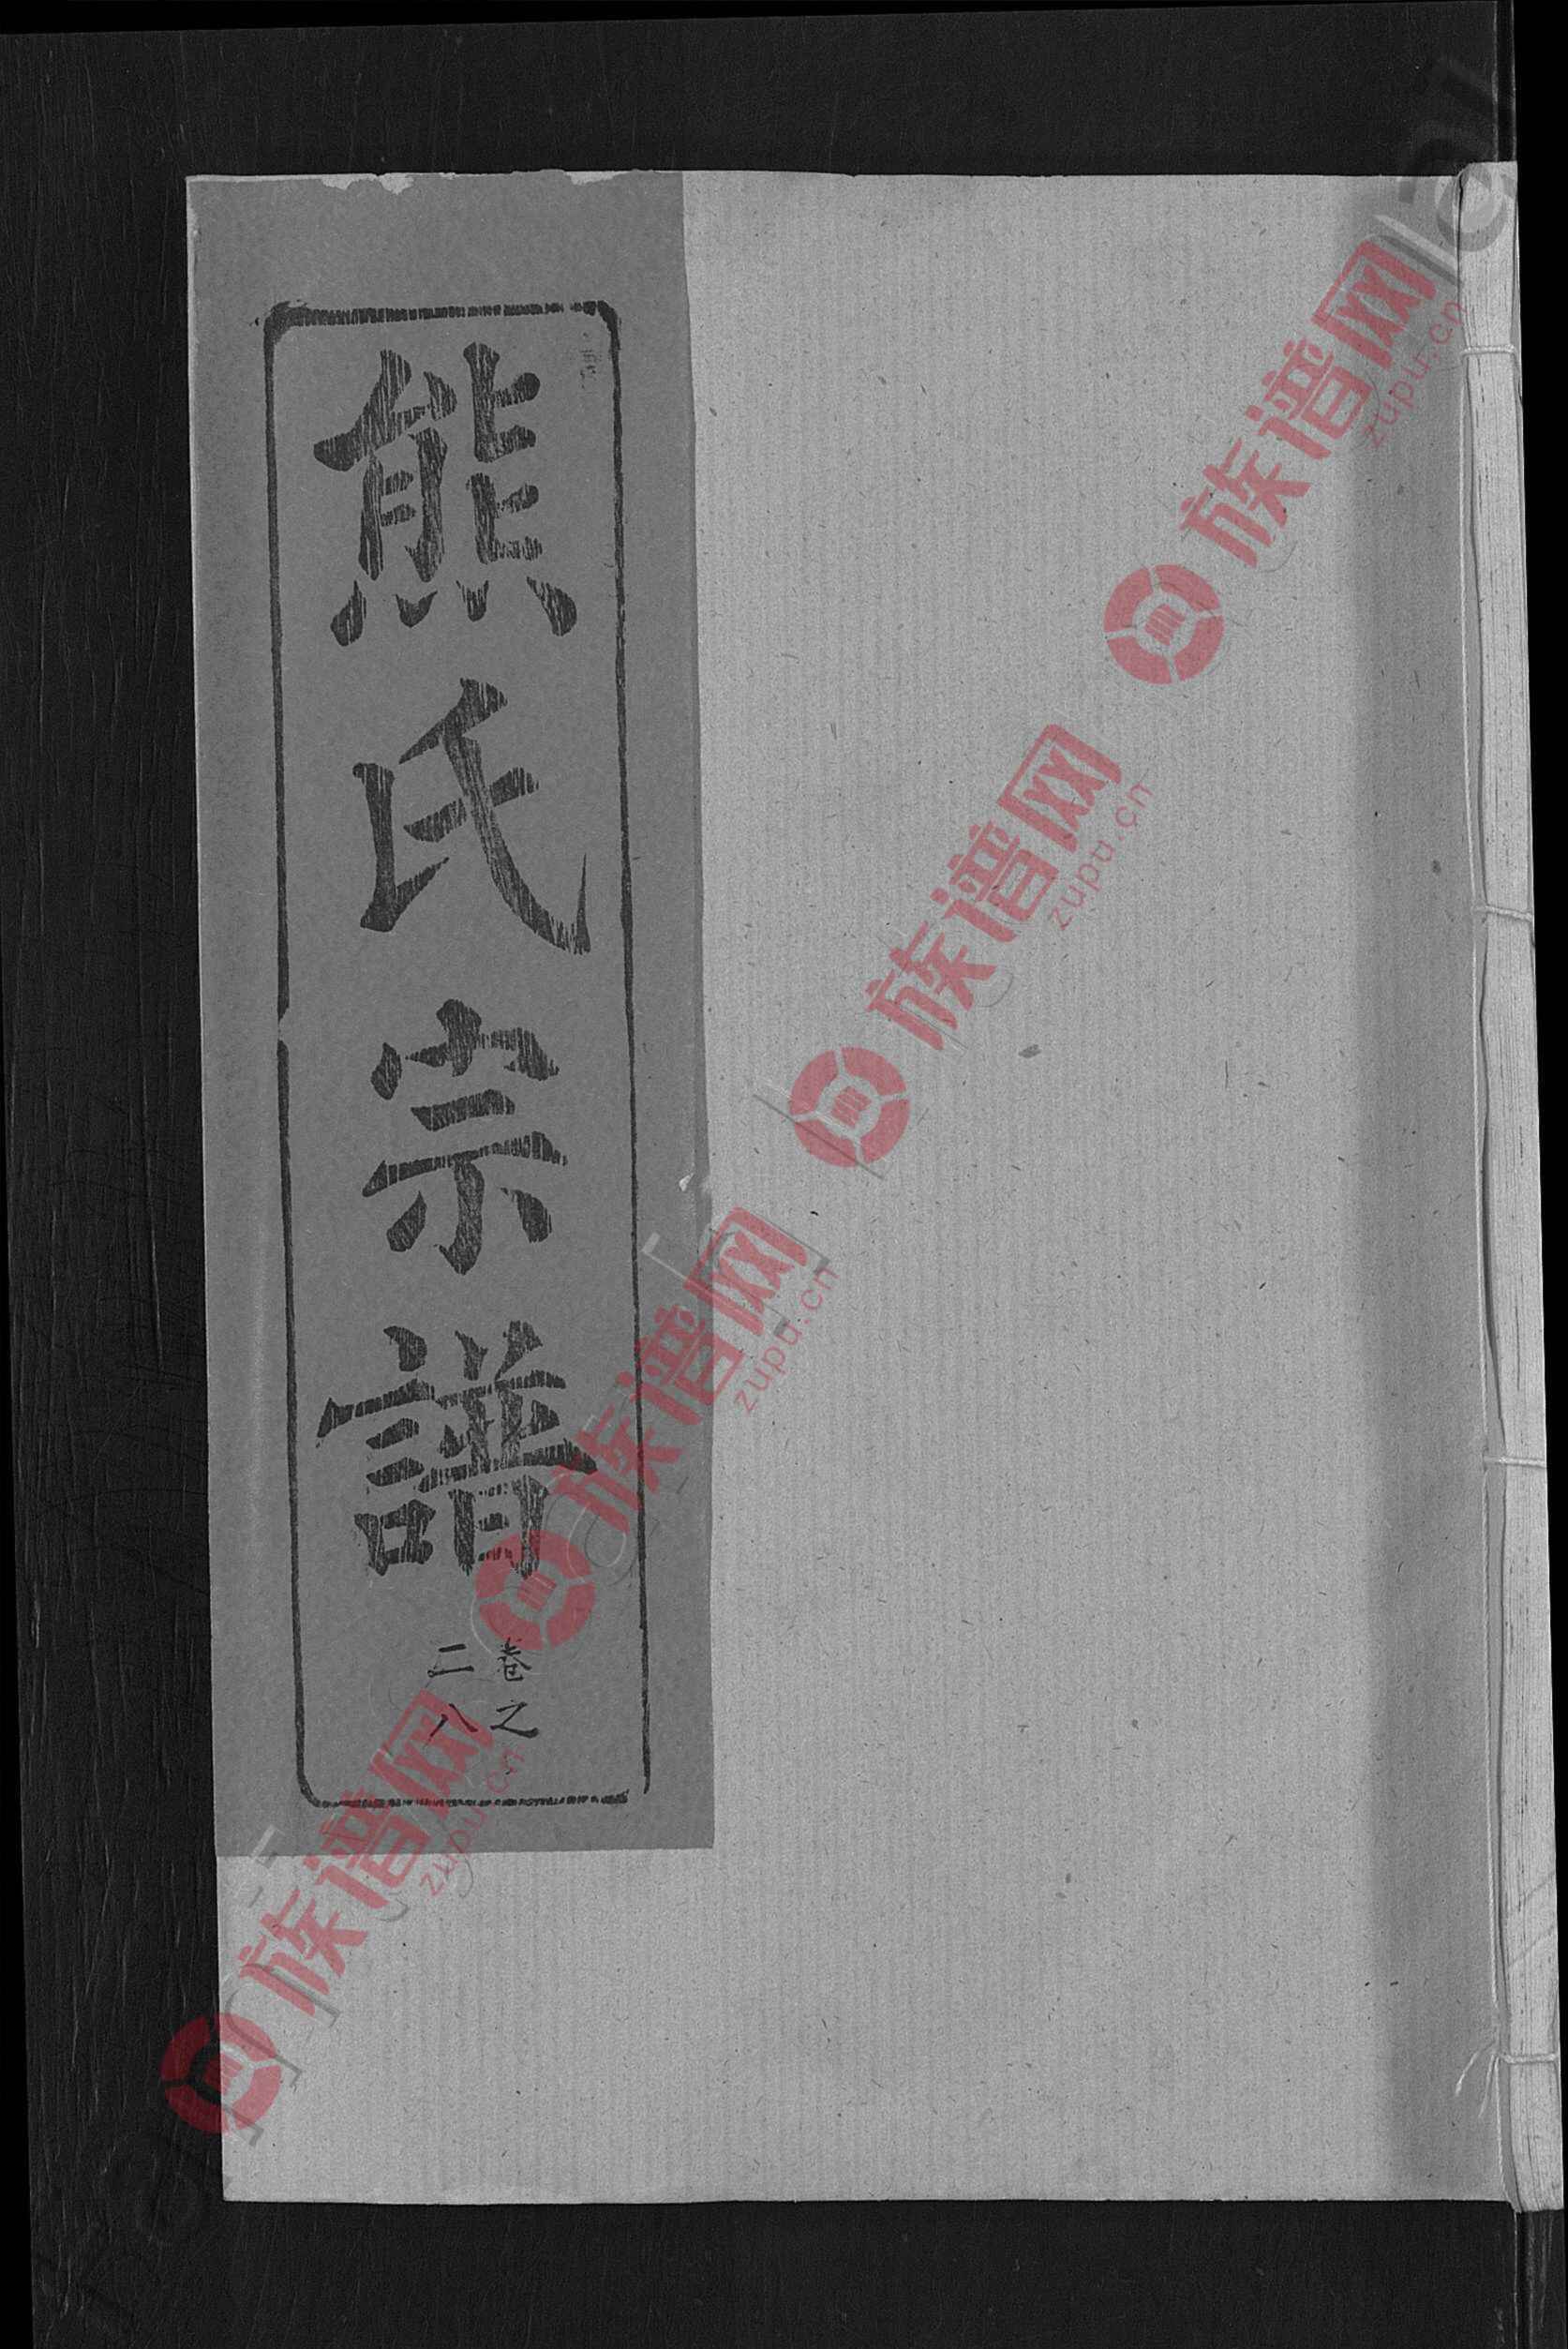 熊氏宗譜
卷之
二八
族谱网
zupu.cn
族谱网
zupu.cn
族谱网
zupu.cn
族谱网
zupu.cn